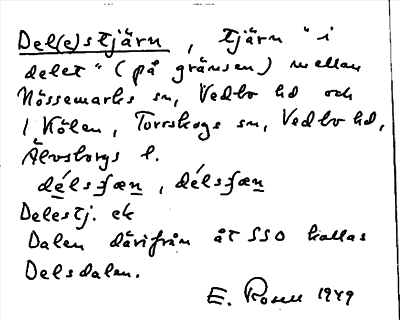 Del(e)stjärn, tjärn "i
delet" (på gränsen) mellan
Nössemarks sn, Vedbo hd och
i Kölen, Torrskogs sn, Vedbo hd,
Älvsborgs l.
délsʃæn, délsʃæn
Delestj. ek
Dalen därifrån åt SSO kallas
Delsdalen.
E. Rosell 1949